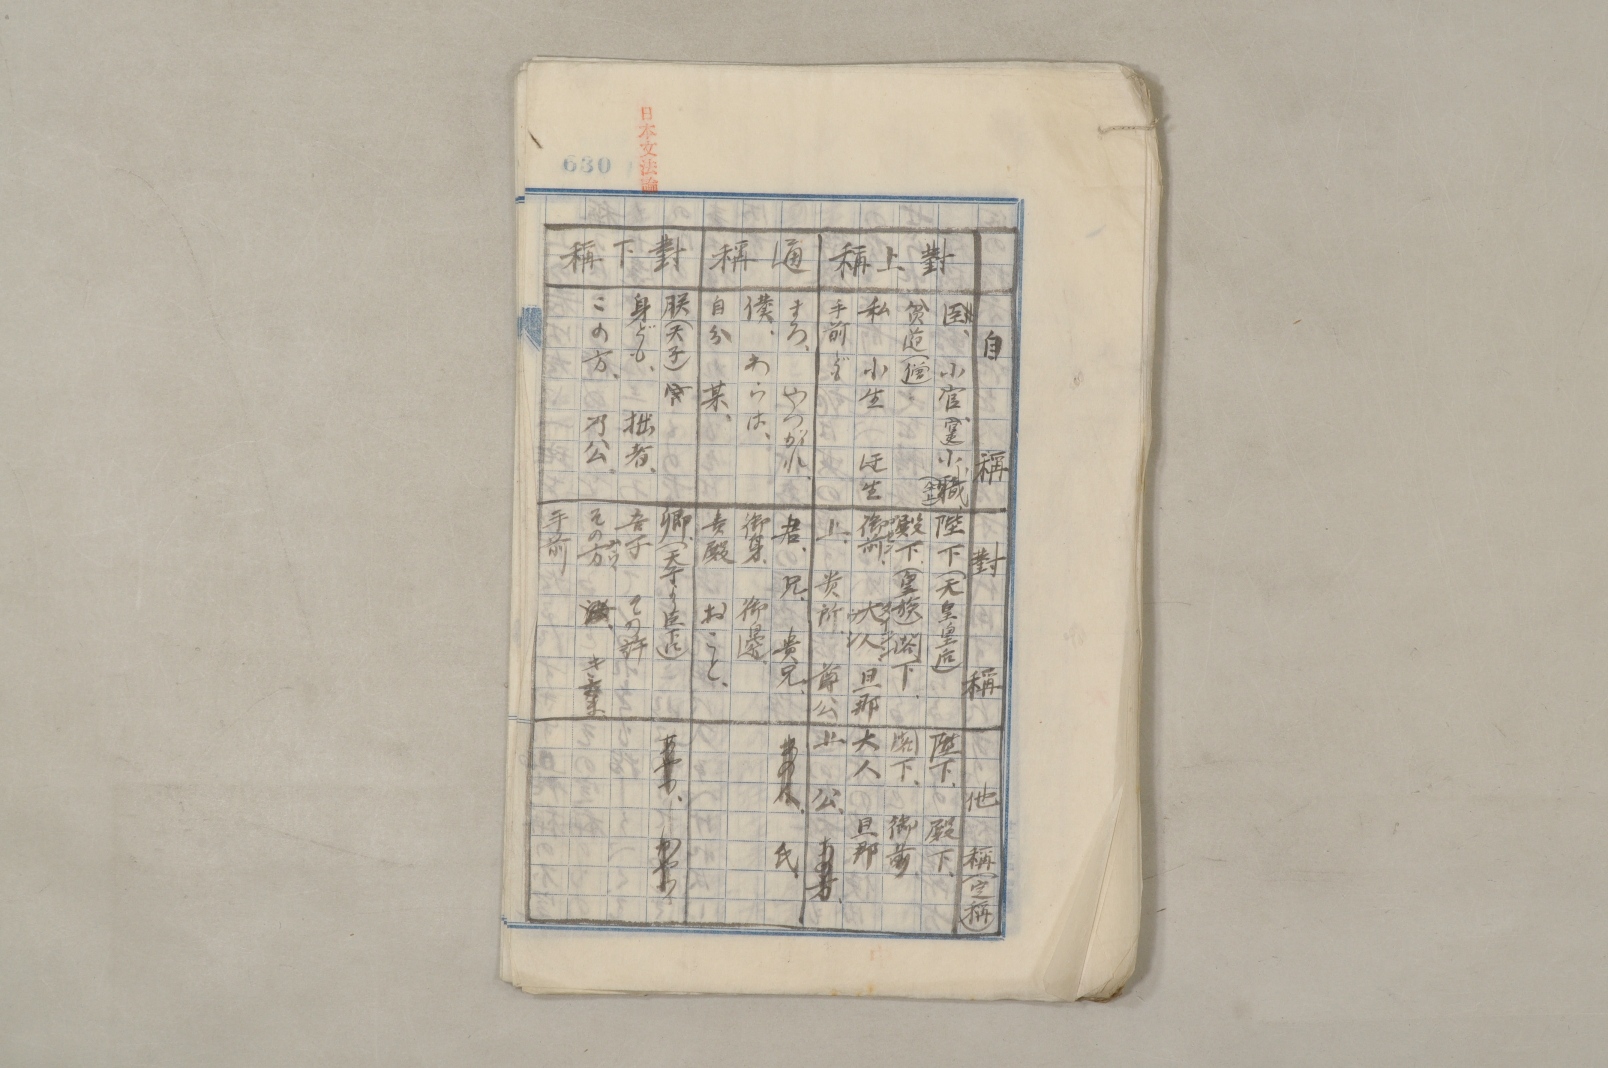 日本文法論
630
自稱
對稱
他稱(定稱)
對上稱
臣、小官 小職
貧道(僧)
私 小生 迂生
手前ども
陛下(天皇皇后)
殿下(皇族)閣下、
御前、大人 旦那
上、貴所、尊公
陛下、殿下、
閣下、御前、
大人 旦那
上、公、あの方、
通稱
まろ、やつがれ、
僕、わらは、
自分 某、
君、兄、貴兄、
御身、御邊、
貴殿 おこと、
あの人、氏、
對下稱
朕(天子)
身ども、拙者、
この方、乃公、
卿、(天子より臣下に)
吾子 その許
その方 きさま、
手前
あやつ、かやつ、